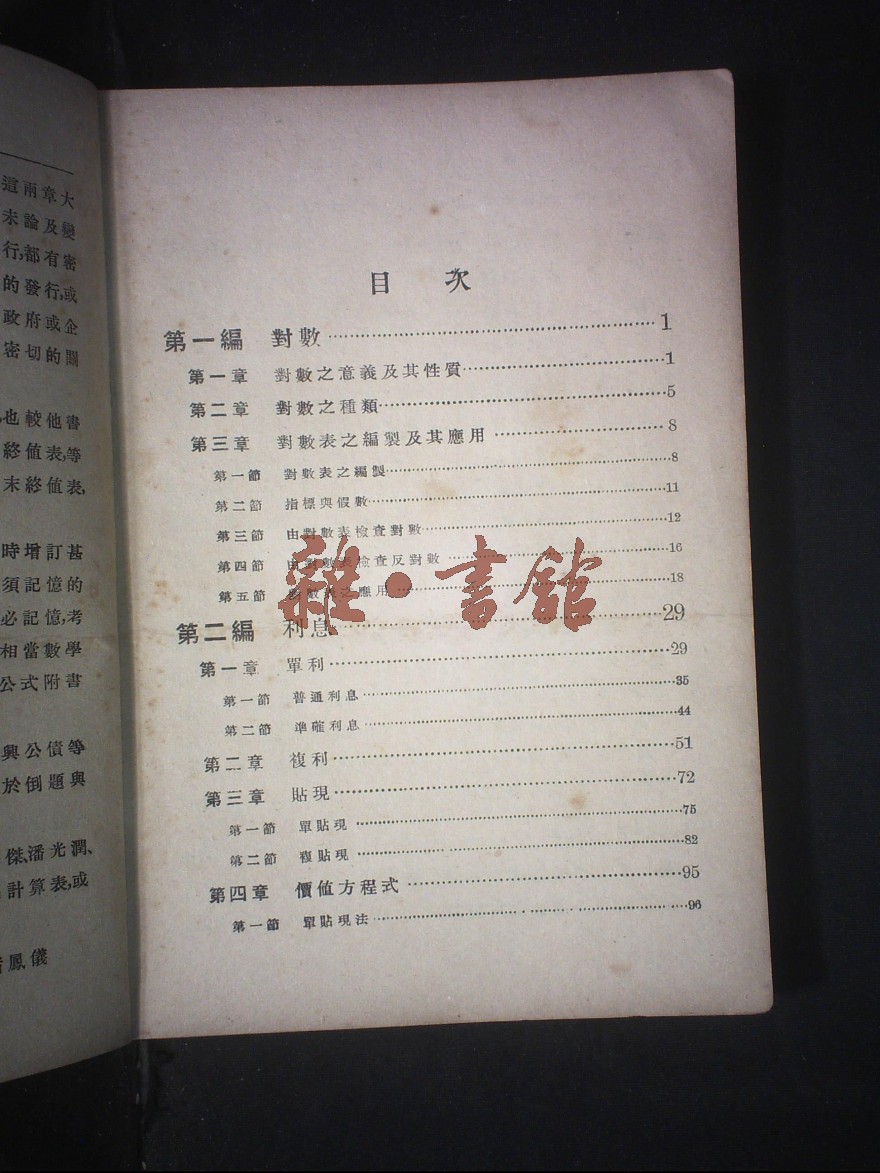 這兩章大
未論及變
行,都有密
的發行,或
政府或企
密切的關
也較他書
終値表,等
末終値表,
時增訂甚
須記憶的
必記憶,考
相當數學
公式附書
興公債等
於倒題與
傑、潘光潤、
計算表,或
鳳儀
目 次
第一編 對數 1
第一章 對數之意義及其性質 1
第二章 對數之種類 5
第三章 對數表之編製及其應用 8
第一節 對數表之編製 8
第二節 指標與假數 11
第三節 由對數表檢查對數 12
第四節 由對數表檢查反對數 16
第五節 對數表之應用 18
第二編 利息 29
第一章 單利 29
第一節 普通利息 35
第二節 準確利息 44
第二章 複利 51
第三章 貼現 72
第一節 單貼現 75
第二節 複貼現 82
第四章 價値方程式 95
第一節 單貼現法 96
雜·書館